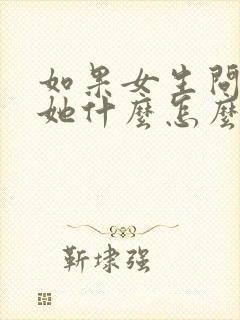 如果女生問
她什麼怎麼
靳埭强